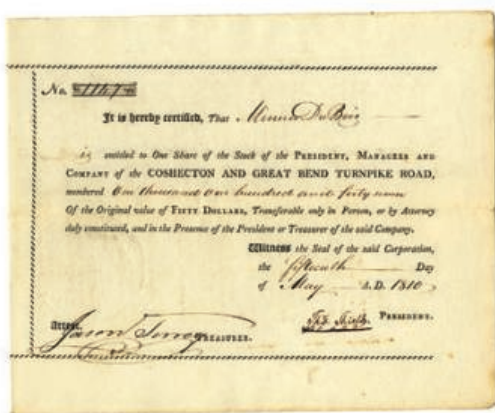 No. 1147
It is hereby certified, That Minner Du Bois
is entitled to One Share of the Stock of the PRESIDENT, MANAGERS AND
COMPANY of the COSHECTON AND GREAT BEND TURNPIKE ROAD,
numbered One thousand one hundred and forty seven
Of the Original value of FIFTY DOLLARS, Transferable only in Person, or by Attorney
duly constituted, and in the Presence of the President or Treasurer of the said Company.
Witness the Seal of the said Corporation,
the fifteenth Day
of May A.D. 1810
PRESIDENT.
Attest.
Jason Torrey TREASURER.